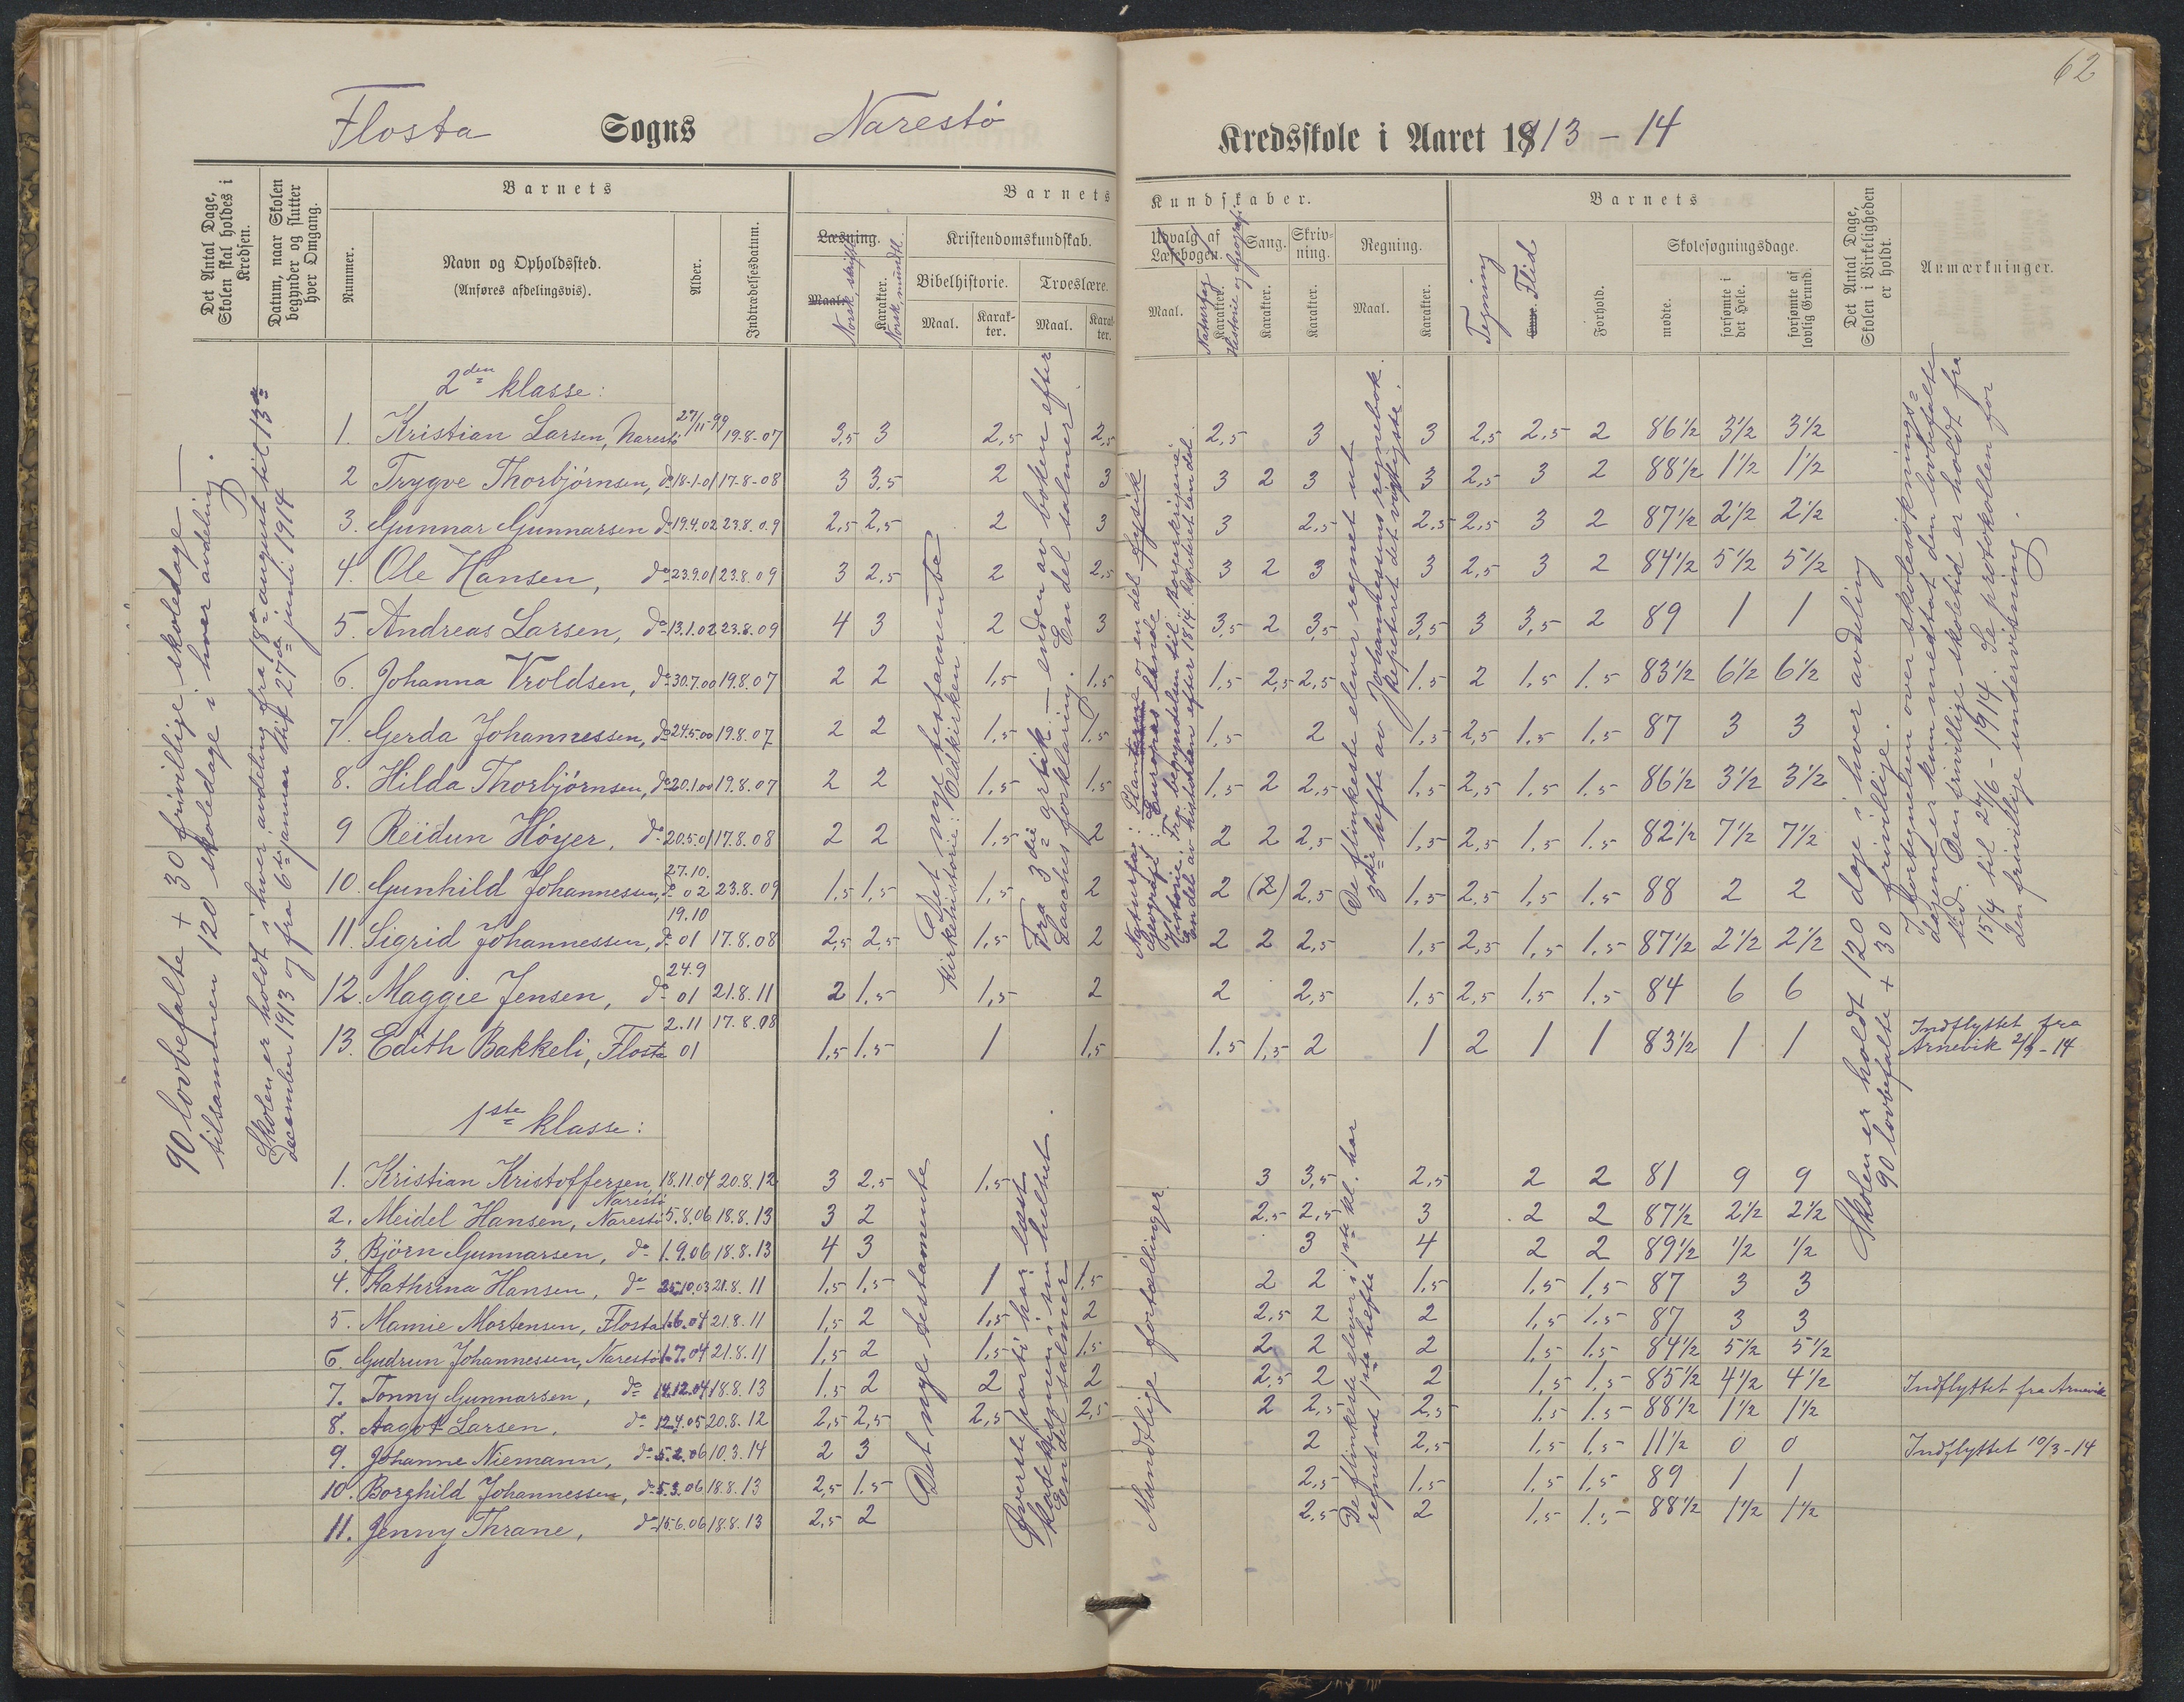 62
Flosta Sogns Narestø Kredsskole i Aaret 1913-14
Det Antal Dage, Skolen skal holdes i Kredsen.
Datum, naar Skolen begynder og slutter hver Omgang.
Barnets
Nummer.
Navn og Opholdssted.
(Anføres afdelingsvis).
Alder.
Indtrædelsesdatum.
Barnets Kundskaber.
Læsning.
Maal.
Norsk, skriftl.
Karakter.
Norsk, mundtl.
Kristendomskundskab.
Bibelhistorie.
Troeslære.
Maal. Karakter. Maal. Karakter.
Udvalg af Læsebogen.
Maal.
Naturfag
Karakter.
Historie og Geografi
Sang.
Karakter.
Skrivning.
Karakter.
Regning.
Maal.
Karakter.
Barnets
Tegning
Flid
Forhold.
Skolesøgningsdage.
mødte.
forsømte i det Hele.
forsømte af lovlig Grund.
Det Antal Dage, Skolen i Virkeligheden er holdt.
Anmærkninger.
90 lovbefalte + 30 frivillige skoledage —
tilsammen 120 skoledage i hver avdeling.
Skolen er holdt i hver avdeling fra 18de august til 13de
december 1913 og fra 6te januar til 27de juni 1914
2den klasse:
1. Kristian Larsen, Narestø 27/11-99 19.8-07 3,5 3 2,5 2,5 2,5 3 3 2,5 2,5 2 86½ 3½ 3½
2 Trygve Thorbjørnsen, do 18-1-01 17.8-08 3 3,5 2 3 3 2 3 3 2,5 3 2 88½ 1½ 1½
3. Gunnar Gunnarsen do 19.4.02 23.8.09 2,5 2,5 2 3 3 2,5 2,5 2,5 3 2 87½ 2½ 2½
4. Ole Hansen, do 23.9.01 23.8.09 3 2,5 2 2,5 3 2 3 3 2,5 3 2 84½ 5½ 5½
5. Andreas Larsen, do 13.1.02 23.8.09 4 3 2 3 3,5 2 3,5 3,5 3 3,5 2 89 1 1
6. Johanna Vroldsen, do 30.7.00 19.8.07 2 2 1,5 1,5 1,5 2,5 2,5 1.5 2 1,5 1.5 83½ 6½ 6½
7. Gerda Johannessen, do 24.5.00 19.8.07 2 2 1,5 1,5 1,5 2 1,5 2,5 1,5 1,5 87 3 3
8. Hilda Thorbjørnsen, do 20.1.00 19.8.07 2 2 1,5 1,5 1,5 2 2,5 1,5 2,5 1,5 1,5 86½ 3½ 3½
9 Reidun Høyer, do 20.5.01 17.8.08 2 2 1,5 2 2 2 2,5 1,5 2,5 1,5 1.5 82½ 7½ 7½
10. Gunhild Johannessen, do 27.10.02 23.8.09 1,5 1,5 1,5 2 2 (2) 2,5 1,5 2,5 1,5 1.5 88 2 2
11. Sigrid Johannessen, do 19.10 01 17.8.08 2,5 2,5 1,5 2 2 2 2,5 1,5 2,5 1,5 1.5 87½ 2½ 2½
12. Maggie Jensen, do 24.9 01 21.8.11 2 1,5 1,5 2 2 2,5 1,5 2,5 1,5 1.5 84 6 6
13. Edith Bakkeli, Flosta 2.11 01 17.8.08 1,5 1,5 1 1,5 1.5 1,5 2 1 2 1 1 83½ 1 1 Indflyttet fra Arnevik 2/3-14
Det nye testamente
Kirkehistorie: Oldkirken
Fra 3die artik. — enden av boken efter
Laaches forklaring. En del salmer.
Naturfag: Planterne og en del fysik
Geografi: Europas lande
Historie: Fra begyndelsen til Borgerkrigene
En del av historien efter 1814. Repetert en del.
De flinkeste elever regnet ut
3die hefte av Johannessens regnebok.
Repeteret det vigtigste.
Skolen er holdt 120 dage i hver avdeling
90 lovbefalte + 30 frivillige.
I fortegnelsen over skolesøknings-
dagene er kun medtat den lovbefalte
tid. Den frivillige skoletid er holdt fra
15/4 til 27/6-1914. Se protokollen for
den frivillige undervisning.
1ste klasse:
1. Kristian Kristoffersen, Narestø 18.11.04 20.8.12 3 2,5 1,5 3 3,5 2,5 2 2 81 9 9
2. Meidel Hansen, Narestø 5.8.06 18.8.13 3 2 2,5 2,5 3 2 2 87½ 2½ 2½
3. Bjørn Gunnarsen, do 1.9.06 18.8.13 4 3 3 4 2 2 89½ ½ ½
4. Kathrina Hansen, do 25.10.03 21.8.11 1,5 1,5 1 1,5 2 2 1,5 1,5 1,5 87 3 3
5. Mamie Mortensen, Flosta 1.6.04 21.8.11 1,5 2 1,5 2 2,5 2 2 1,5 1.5 87 3 3
6. Gudrun Johannessen, Narestø 1.7.04 21.8.11 1,5 2 1,5 1,5 2 2 2 1,5 1.5 84½ 5½ 5½
7. Tonny Gunnarsen, do 14.12.04 18.8.13 1,5 2 2 2 2,5 2 2 1,5 1.5 85½ 4½ 4½ Indflyttet fra Arnevik
8. Aagot Larsen, do 12.4.05 20.8.12 2,5 2,5 2,5 2,5 2 2,5 2,5 1,5 1.5 88½ 1½ 1½
9. Johanne Niemann, do 5.2.06 10.3.14 2 3 2 2,5 1,5 1,5 11½ 0 0 Indflyttet 10/3-14
10. Borghild Johannessen, do 5.3.06 18.8.13 2,5 1.5 2,5 1,5 1,5 1,5 89 1 1
11. Jenny Thrane, do 15.6.06 18.8.13 2,5 2 2,5 2 1,5 1.5 88½ 1½ 1½
Det nye testamente
Øverste parti har læst
katekismen i sin helhet.
En del salmer
Mundtlige fortællinger.
De flinkeste elever i 1ste kl. har
regnet ut 1ste hefte